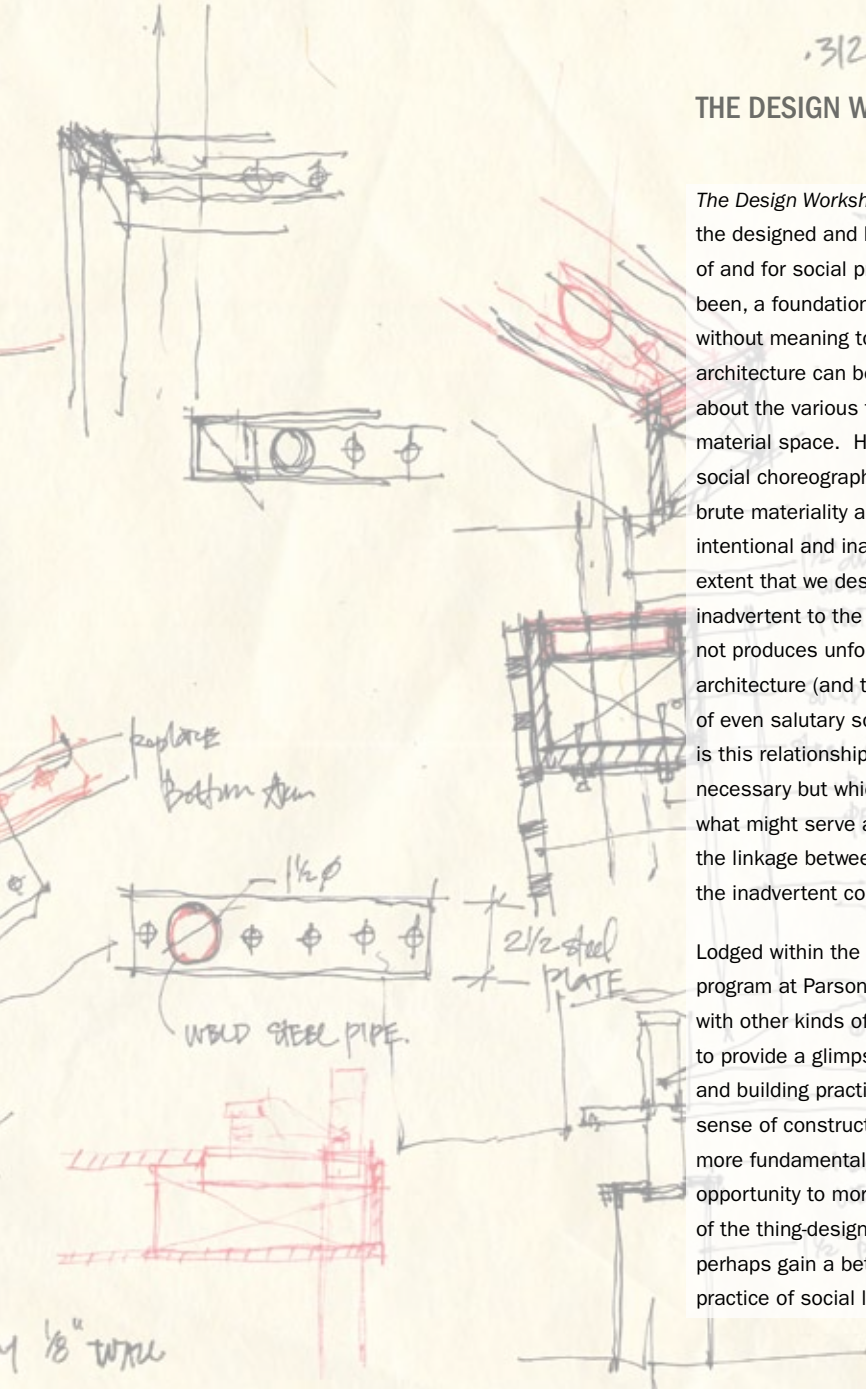 .312
THE DESIGN W
The Design Worksh
the designed and
of and for social p
been, a foundation
without meaning to
architecture can be
about the various
material space. H
social choreograph
brute materiality a
intentional and ina
extent that we des
inadvertent to the
not produces unfo
architecture (and t
of even salutary so
is this relationship
necessary but whic
what might serve a
the linkage between
the inadvertent co
Lodged within the
program at Parson
with other kinds of
to provide a glimps
and building practi
sense of construct
more fundamental
opportunity to mor
of the thing-design
perhaps gain a bet
practice of social l
replace
Bottom Arm
1½ ø
2½ steel
PLATE
WELD STEEL PIPE.
1/8" WALL